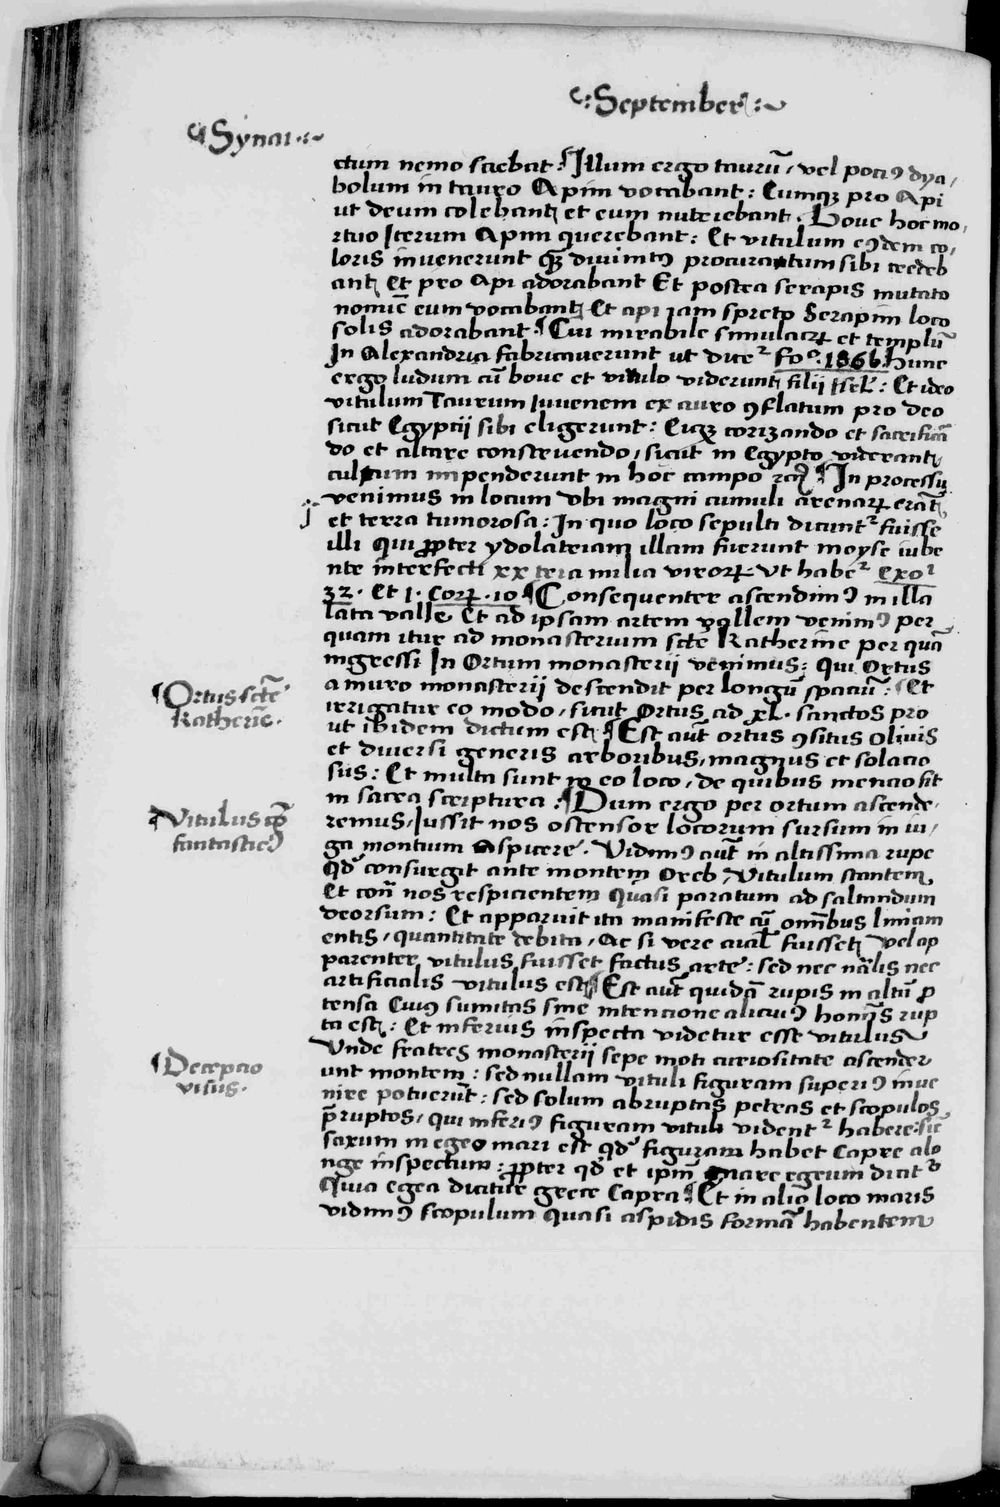 September
Synai
ctum nemo sciebat. Illum ergo taurū, vel poci9 dya,
bolum in tauro Apim vocabant: Cumqz pro Api
ut deum colebant et eum nutriebant. Bove hoc mo,
rtuo Iterum Apim querebant: Et vitulum eiusdem co,
loris invenerunt qz divinit9 procuratum sibi credeb
ant Et pro Api adorabant Et postea serapis mutato
nomīe eum vocabant Et api iam spreto Serapim loco
solis adorabant. Cui mirabile simulacꝝ et templū
In Alexandria fabricaverunt ut dicitr fo. 186 b. Hunc
ergo ludum cū bove et vitulo viderunt filii isrl: Et ideo
vitulum Taurum Iuvenem ex auro 9flatum pro deo
sicut Egyptii sibi eligerunt: Eiqz corizando et sacrificā
do et altare construendo, sicut in Egypto viderant
cultum impenderunt in hoc campo In processu
venimus in locum ubi magni cumuli arenaꝝ erāt
et terra tumorosa: In quo loco sepulti dicuntr fuisse
illi qui ꝓpter ydolatriam illam fuerunt moyse iube
nte interfecti xx tria milia viroꝝ. Ut haber Exo
32. Et 1. Coꝝ. 10. Consequenter ascendim9 in illa
lata valle Et ad ipsam artem vallem venim9 per
quam itur ad monasterium scte Katherine per quā
ingressi In Ortum monasterii venimus: Qui Ortus
a muro monasterii descendit per longū spaciū: Et
irrigatur eo modo, sicut Ortus ad xl. sanctos pro
ut ibidem dictum est Est aūt ortus 9situs Olivis
et diversi generis arboribus, magnus et solacio
sus: Et multa sunt in eo loco, de quibus mencio fit
in sacra scriptura: Dum ergo per ortum ascende,
remus, Iussit nos ostensor locorum sursum in iu,
ga montium aspicere. Vidim9 aūt in altissima rupe
qd consurgit ante montem Oreb, Vitulum stantem
Et con nos respicientem quasi paratum ad saltandum
deorsum: Et apparuit ita manifeste cū omībus liniam
entis, quantitate debita, Ac si vere aīal fuisset vel ap
parenter vitulus fuisset factus arte: sed nec nālis nec
artificialis vitulus est Est aūt quidā rupis in altū ꝓ
tensa Cui9 sumitas sine intencione alicui9 homīs rup
ta est: Et inferius inspecta videtur esse vitulus
Unde fratres monasterii sepe moti curiositate ascender
unt montem: sed nullam vituli figuram superi9 inve
nire potuerūt: sed solum abruptas petras et scopulos
p̄ruptos, qui inferi9 figuram vituli videntr habere: sic
saxum in egeo mari est qd figuram habet Capre alo
nge inspectum: ꝓpter qd et ipm mare egeum dicitr
Quia egea dicitur grece Capra Et in alio loco maris
vidim9 scopulum quasi aspidis formā habentem
Ortus scte
Katherīe.
Vitulus
fantastic9
Decepcio
visus.